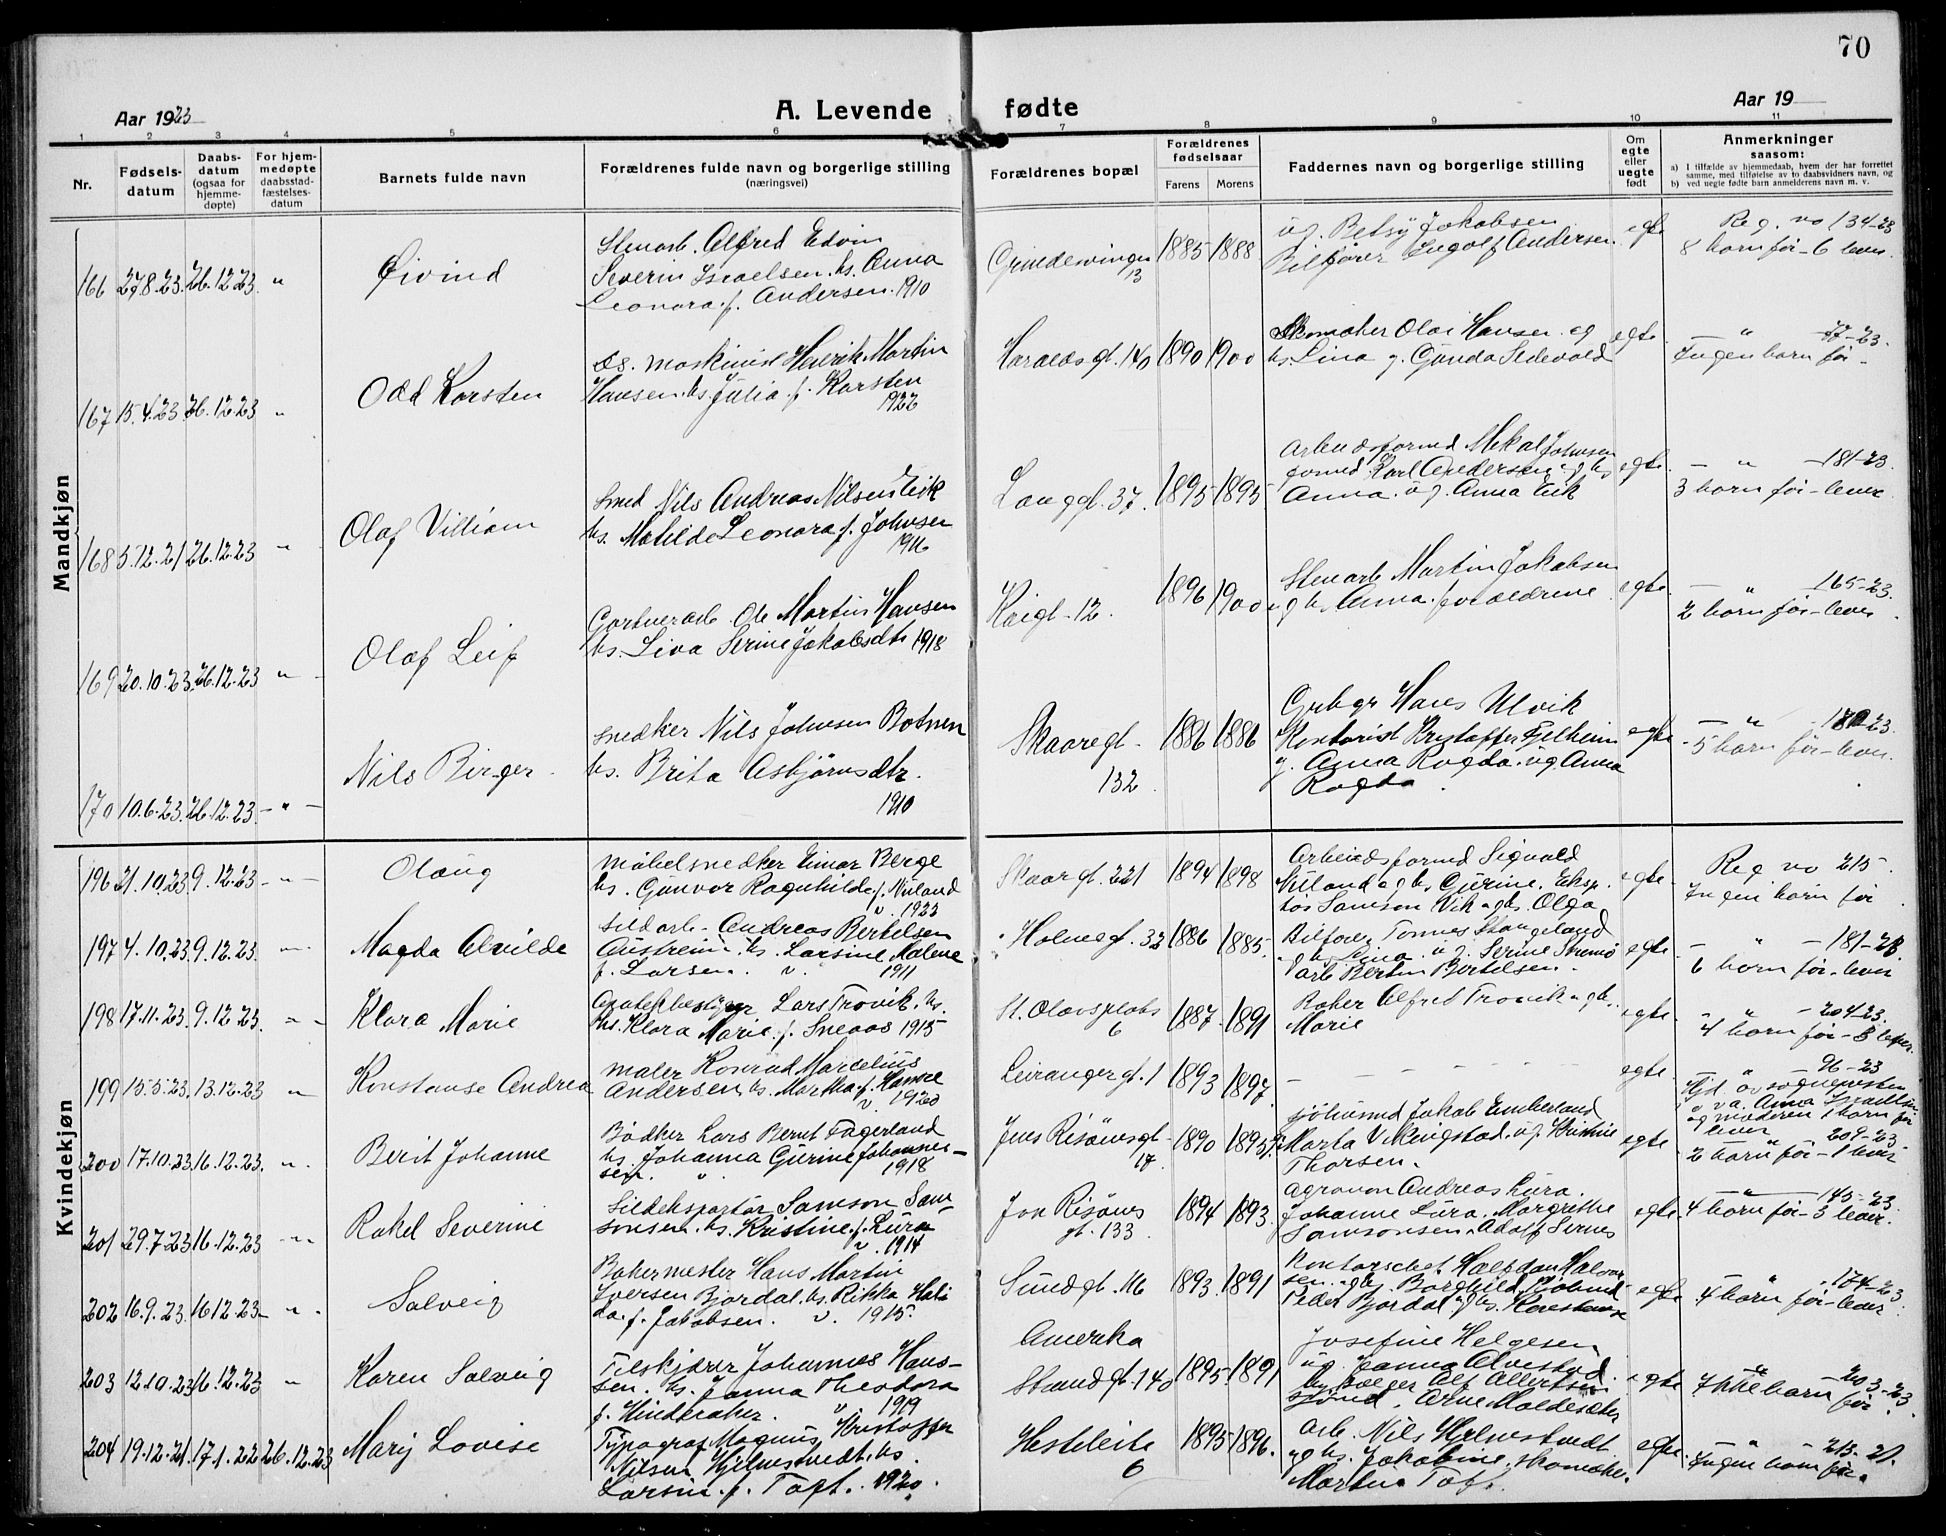 70
Aar 1923
A. Levende fødte
Aar 19
1 2 3 4 5 6 7 8 9 10 11
Nr.
Fødsels-
datum
Daabs-
datum
(ogsaa for
hjemme-
døpte)
For hjem-
medøpte
daabsstad-
fæstelses-
datum
Barnets fulde navn
Forældrenes fulde navn og borgerlige stilling
(næringsvei)
Forældrenes bopæl
Forældrenes
fødselsaar
Farens Morens
Faddernes navn og borgerlige stilling
Om
egte
eller
uegte
født
Anmerkninger
saasom:
a) I tilfælde av hjemmedaab, hvem der har forrettet
samme, med tilføielse av to daabsvidners navn, og
b) ved uegte fødte barn anmelderens navn m. v.
Mandkjøn
166 27.8.23. 26.12.23. "
Øivind
Stenarb. Alfred Edvin
Severin Israelsen. hs. Anna
Leonora f. Andersen. 1910
Grindevingen
13
1885 1888
ug. Betsy Jakobsen
Bilfører Ingolf Andersen.
egte
Reg. no 134-23
8 born før - 6 lever.
167 15.4.23 26.12.23 "
Odd Karsten
Ds. maskinist Henrik Martin
Hansen. hs. Julia f. Karsten
1922
Haralds gt. 140
1890 1900
Skomaker Olai Hansen og
hs. Lina g. Gunda Sedevold
egte
— " — 77-23.
Ingen barn før -
168 5.12.21 26.12.23 "
Olaf Villiam
Smed Nils Andreas Nilsen Eik
hs. Matilde Leonora f. Johnsen
1916
Langgt. 37.
1895 1895
Arbeidsformd Mekal Johnsen
formd Karl Andersen og hs
Anna. ug. Anna Eik
egte
— " — 181-23
3 born før - lever
169 20.10.23. 26.12.23 "
Olaf Leif
Gartnerarb. Ole Martin Hansen
hs. Liva Serine Jakobsdtr 1918
Kaigt. 12.
1896 1900
Stenarb Martin Jakobsen
og hs. Anna. forældrene
egte
— " — 165-23.
2 born før - lever
170 10.6.23. 26.12.23. — " —
Nils Birger
snedker Nils Johnsen Botnen
hs. Brita Asbjørnsdtr.
1910
Skaaregt.
132
1886 1886
Grbgr Hans Ulvik
Kontorist Kristoffer Fjelheim
g. Anna Rogda. ug. Anna
Rogda.
egte
— " — 23.
5 born før - lever.
Kvindekjøn
196 21.10.23 9.12.23 — " —
Olaug
Møbelsnedker Einar Berge
hs. Gunvor Ragnhilde f. Niiland
v. 1922
Skaargt. 221
1894 1898
Arbeidsformd Sigvald
Niiland og hs Gurine. Eksp.
tør Samson Vik og hs. Olga
egte
Reg no 215.
Ingen barn før
197 4.10.23 9.12.23. "
Magda Alvilde
Sildarb. Andreas Bertelsen
Austreim. hs. Larsine Malene
f. Larsen. v. 1911
Holmegt. 32
1886 1885.
Bilfører Tønnes Stangeland
og hs Lina. ug. Serine Strømø
arb Bertin Bertelsen.
egte
— " — 181-23.
6 born før - lever
198 17.11.23. 9.12.23. "
Klara Marie
Lars Trovik. hs.
hs. Klara Marie. f. Sneaas 1915
St. Olavsplads
6
1887. 1891
Baker Alfred Trovik og hs.
Marie
egte
— " — 204-23.
4 born før - 3 lever.
199 15.5.23. 13.12.23 "
Konstanse Andrea
maler Konrad Marcelius
Andersen hs. Martha f. Hamre
v. 1920
Leirangergt. 1
1893 1897.
— — — — —
egte
— " — 96-23
Hjd. av sognepresten
v. a. Anna Israelsen
og moderen 1 barn før
lever
200 17.10.23 16.12.23. "
Berit Johanne
Bødker Lars Bernt Fagerland
hs. Johanna Gurine Johannes-
sen. v. 1918
Jens Risøensgt
17
1890 1895
Sjømand Jakob Emberland
Marta Vikingstad. ug. Kristine
Thorsen.
egte
209-23.
2 barn før - 1 lever
201 29.7.23 16.12.23 "
Rakel Severine
Sildeksportør Samson Sam-
sonsen. hs. Kristine f. Lura
v. 1914
Jon Risøens
gt. 133
1894 1893.
agronom Andreas Lura.
Johanne Lura. Margrethe
Samsonsen. Adolf Sirnes
egte
— " — 145-23
4 børn før - 3 lever.
202 16.9.23. 16.12.23 "
Solveig
Bakermester Hans Martin
Iversen Bjordal. hs. Rikka Hali
da. f. Jakobsen. v. 1915.
Sundgt. 16
1893. 1891
Kontorchef Halfdan Halvor
sen. og hs. Borghild.
Peder Bjordal og hs. Konstanse
egte
" 174-23
4 børn før - lever
203 12.10.23 16.12.23 "
Karen Solveig
Filskjærer Johannes Hans-
sen. hs. Janna Theodora
f. Hinderaker. v 1919
Amerika
Strandgt. 140
1895. 1891
Josefine Helgesen
ug. Janna Alvestad.
Alf Albertsen
sjømd. Arne Maldesæter
egte
— " — 203-23
barn før.
204 19.12.21 17.1.22 26.12.23
Mary Lovise
Typograf Magnus Kristoffer
Nilsen Hjelmstvedt. hs.
Larsine f. Toft. 1920.
Hesteleite
6
1895 1896.
Arb. Nils Hjelmstvedt
og hs. Jakobine. skomaker
Martin Toft.
egte
— " — 213-21.
Ingen barn før.